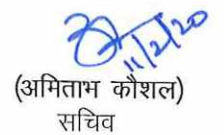 11/2/20
(अमिताभ कौशल)
सचिव